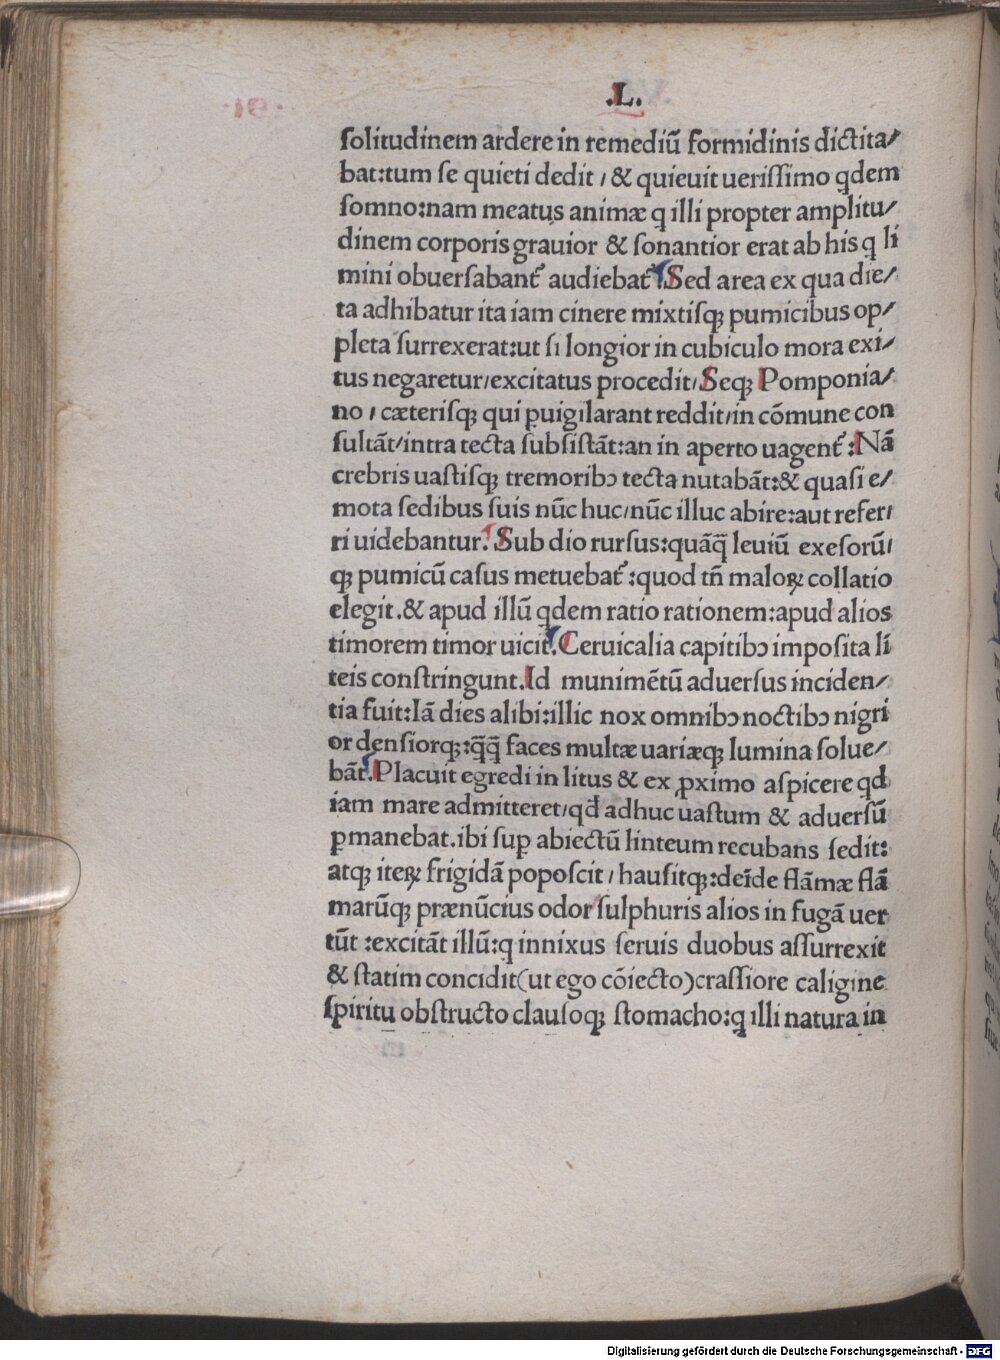 .L.
ſolitudinem ardere in remediū formidinis dictita/
bat:tum ſe quieti dedit / & quieuit ueriſſimo qdem
ſomno:nam meatus animæ q illi propter amplitu/
dinem corporis grauior & ſonantior erat ab his q li
mini obuerſabant᷑ audiebat᷑.Sed area ex qua die/
ta adhibatur ita iam cinere mixtiſqꝫ pumicibus op/
pleta ſurrexerat:ut ſi longior in cubiculo mora exi/
tus negaretur/excitatus procedit/Seqꝫ Pomponia/
no / cæteriſqꝫ qui ꝑuigilarant reddit/in cōmune con
ſultāt/intra tecta ſubſiſtāt:an in aperto uagent᷑:Nā
crebris uaſtiſqꝫ tremoribꝰ tecta nutabāt:& quaſi e/
mota ſedibus ſuis nūc huc/nūc illuc abire:aut refer/
ri uidebantur.Sub dio rurſus:quāq̄ leuiū exeſorū/
qꝫ pumicū caſus metuebat᷑:quod tn̄ maloꝝ collatio
elegit.& apud illū qdem ratio rationem:apud alios
timorem timor uicit.Ceruicalia capitibꝰ impoſita lī
teis conſtringunt.Id munimētū aduerſus inciden/
tia fuit:Iā dies alibi:illic nox omnibꝰ noctibꝰ nigri
or denſiorqꝫ:q̄q̄ faces multæ uariæqꝫ lumina ſolue/
bāt.Placuit egredi in litus & ex ꝓximo aſpicere qd
iam mare admitteret/qd adhuc uaſtum & aduerſū
ꝑmanebat.ibi ſuꝑ abiectū linteum recubans ſedit:
atqꝫ iteꝝ frigidā popoſcit / hauſitqꝫ:deīde flāmæ flā
marūqꝫ prænūcius odor ſulphuris alios in fugā uer
tūt :excitāt illū:q innixus ſeruis duobus aſſurrexit
& ſtatim concidit(ut ego cōiecto)craſſiore caligine
ſpiritu obſtructo clauſoqꝫ ſtomacho:q illi natura in
Digitalisierung gefördert durch die Deutsche Forschungsgemeinschaft - DFG